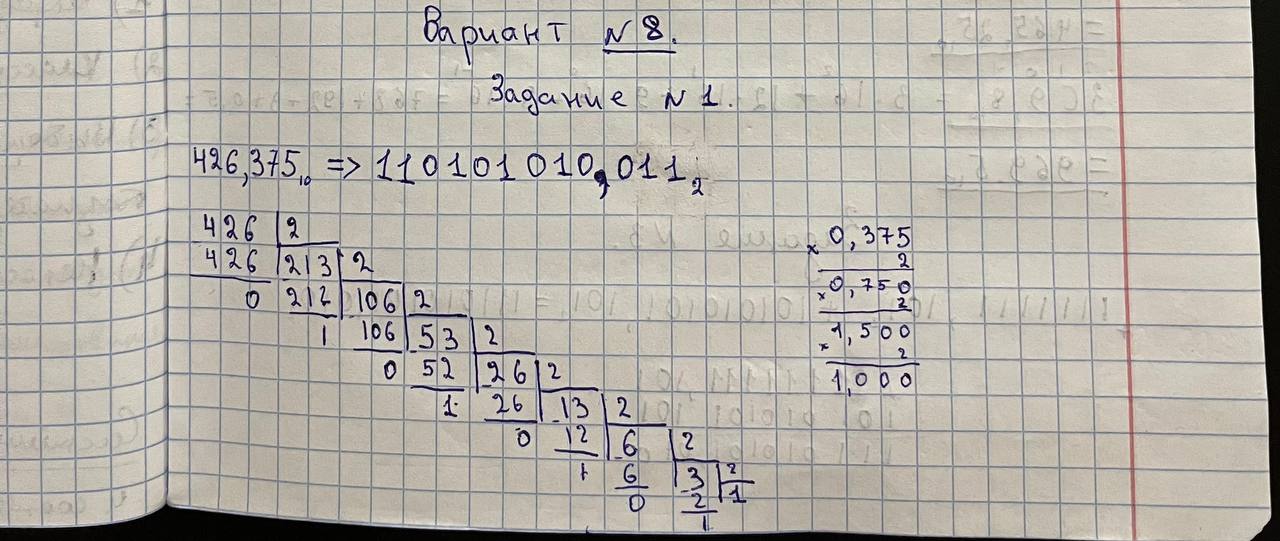 Вариант №8.
Задание №1.
426,375₁₀ => 110101010,011₂
426 2
426 213 2
0 212 106 2
1 106 53 2
0 52 26 2
1 26 13 2
0 12 6 2
1 6 3 2
0 2 1
1
0,375
× 2
0,750
× 2
1,500
× 2
1,000